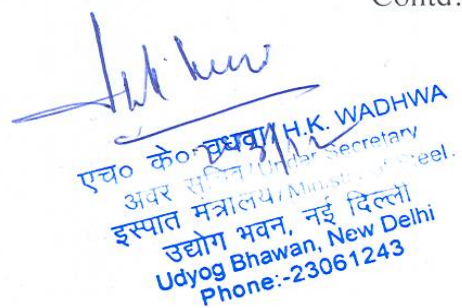 Contd.
एच० के० वधवा/H.K. WADHWA
अवर सचिव/Under Secretary
इस्पात मंत्रालय/Ministry of Steel.
उद्योग भवन, नई दिल्ली
Udyog Bhawan, New Delhi
Phone:-23061243